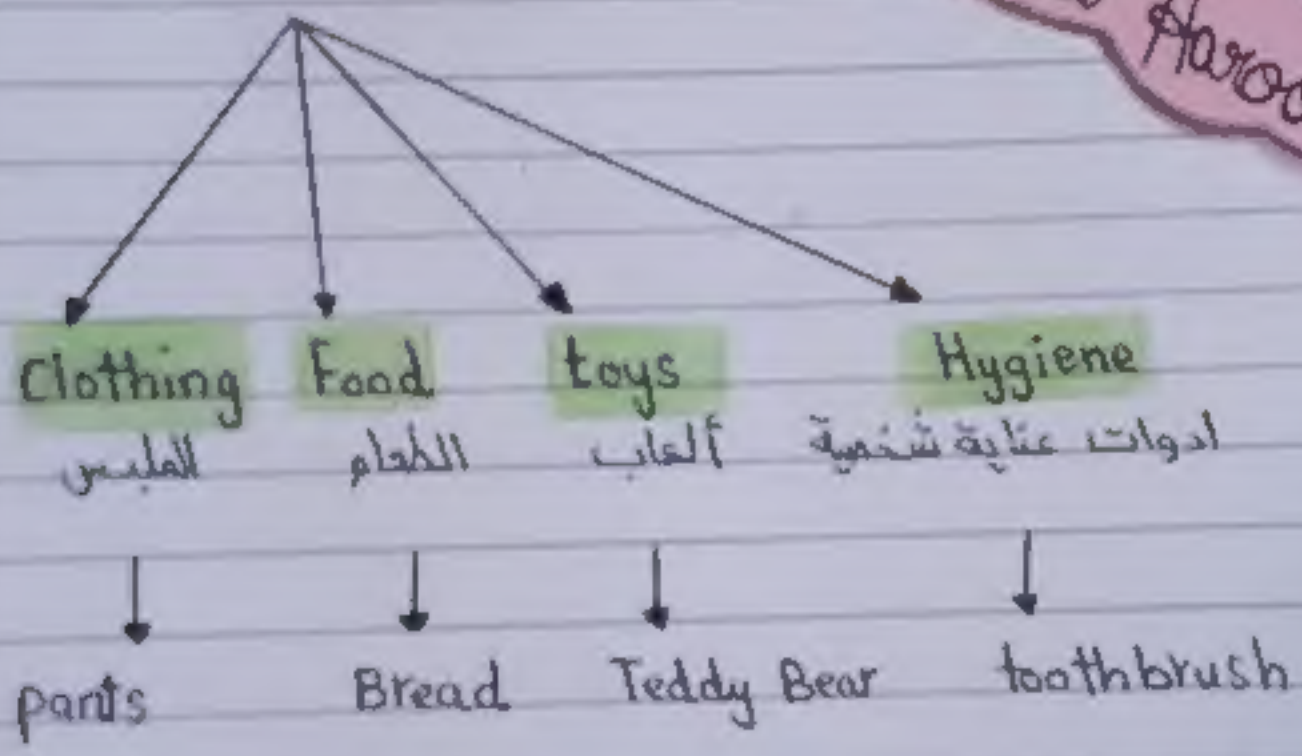 Haroo
Clothing Food toys Hygiene
الملبس الطعام ألعاب ادوات عناية شخصية
pants Bread Teddy Bear toothbrush